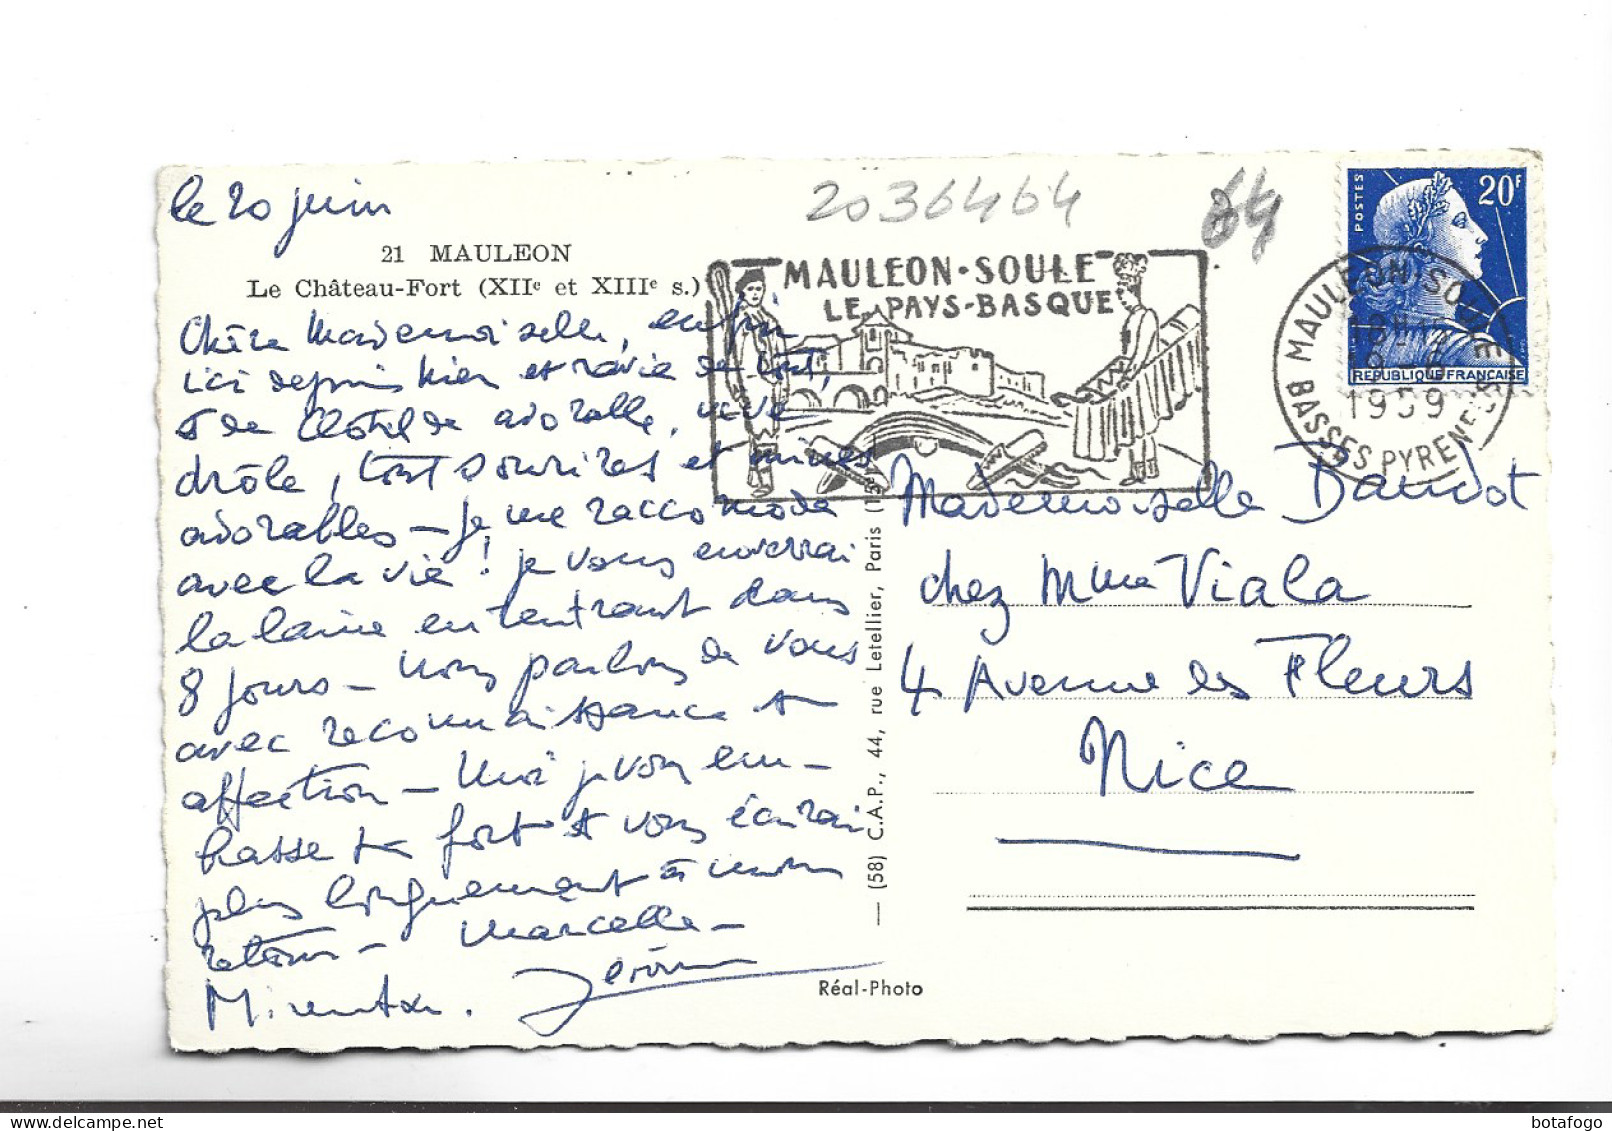 le 20 juin
21 MAULEON
Le Château-Fort (XIIe et XIIIe s.)
Chère Mademoiselle, enfin
ici depuis hier et ravie de tout,
et de Clotilde adorable, vive
drôle, tout sourires et mines
adorables - Je me raccomode
avec la vie ! je vous enverrai
la laine en rentrant dans
8 jours - nous parlons de vous
avec reconnaissance et
affection - Moi je vous em-
brasse très fort et vous écrirai
plus longuement à mon
retour - Marcelle -
Jérôme
2036464
64
MAULEON-SOULE
LE PAYS-BASQUE
POSTES
20F
REPUBLIQUE FRANÇAISE
MAULEON SOULE
18H
1959
BASSES PYRENEES
Mademoiselle Dandot
chez Mme Viala
4 Avenue des Fleurs
Nice
— (58) C.A.P., 44, rue Letellier, Paris (15e)
Réal-Photo
botafogo